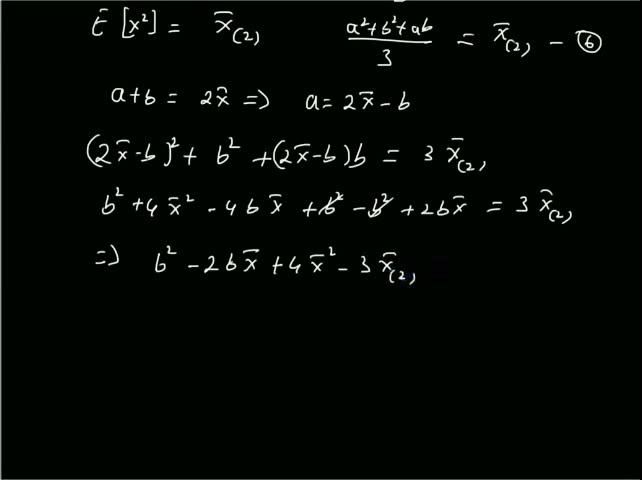 E [x²] = x̄₍₂₎ (a²+b²+ab)/3 = x̄₍₂₎ – ⑥
a+b = 2x̄ => a = 2x̄ – b
(2x̄–b)² + b² + (2x̄–b)b = 3 x̄₍₂₎
b² + 4x̄² – 4bx̄ + b² – b² + 2bx̄ = 3 x̄₍₂₎
=> b² – 2bx̄ + 4x̄² – 3x̄₍₂₎